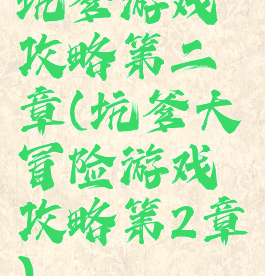 坑爹游戏
攻略第二
章(坑爹大
冒险游戏
攻略第2章
)